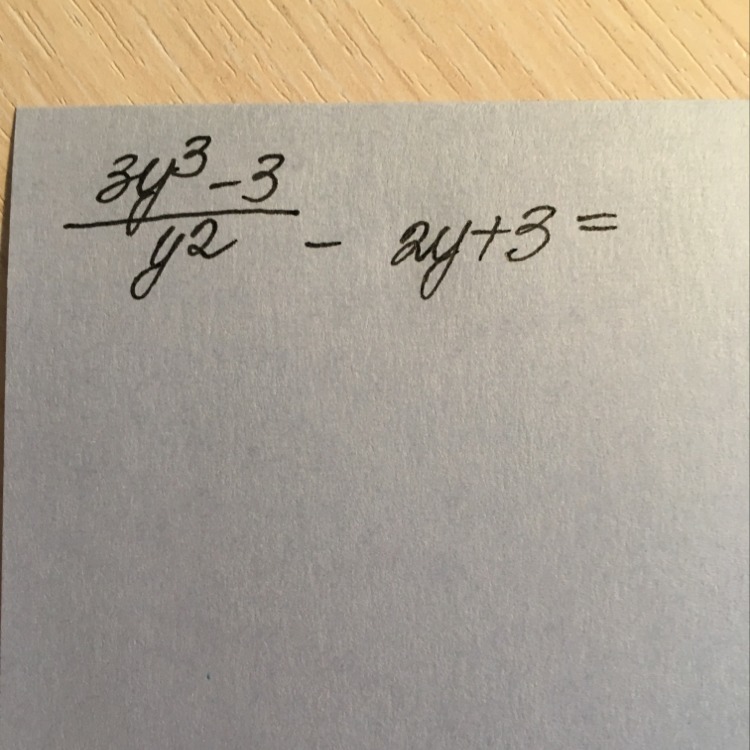 3y³-3
y2 - 2y+3=